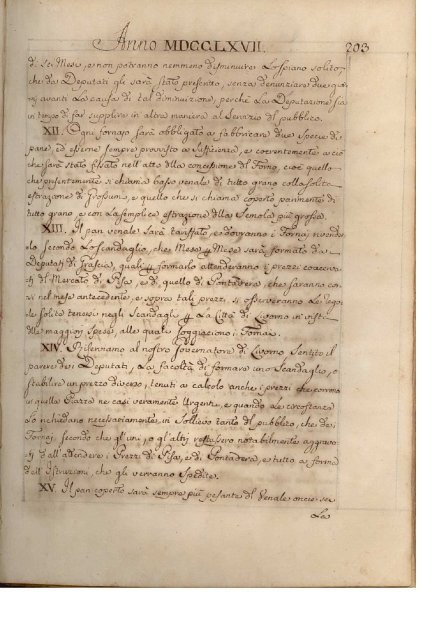 Anno MDCCLXVII. 203
di sei Mesi, e non potranno nemmeno diminuirsi Lo spiano solito,
che da Deputati gli sarà stato prescritto, senza denunziare due giorni
avanti La causa di tal diminuzione, perché La Deputazione sia
in tempo di far supplire in altra maniera al Servizio del pubblico.
XII. Ogni fornajo sarà obbligato a fabbricare due specie di
pane, ed esserne sempre provvisto a sufficienza, e coerentemente a ciò
che sarà stato fissato nell' atto della concessione del Forno, cioè quello
che presentemente si chiama basso venale di tutto grano colla solita
estrazione di, e quello che si chiama coperto parimente di
tutto grano, e con La semplice estrazione della Semola più grossa.
XIII. Il pan venale sarà tariffato, e dovranno i Fornaj venderlo
Secondo Lo Scandaglio, che Mese per Mese sarà formato da
Deputati di Grascia, quali per formarlo attenderanno i prezzi
del Mercato di Pisa, e di quello di Pontadera che saranno corsi
nel mese antecedente, e sopra tali prezzi si osserveranno Le regole
solite tenersi negli Scandagli per La Città di Livorno in vista
delle maggiori spese, alle quali soggiacciono i Fornai.
XIV. Riserviamo al nostro Governatore di Livorno Sentito il
parere dei Deputati, La facoltà di formare uno Scandaglio, o
stabilire un prezzo diverso, tenuti a calcolo anche i prezzi che corrono
quella Piazza ne casi veramente Urgenti, e quando Le circostanze
Lo richiedano necessariamente, in Sollievo tanto del pubblico, che dei
Fornaj, secondo che gli uni, o gli altri restassero notabilmente aggravati
dall' attendere i Prezzi di Pisa, e di Pontadera, e tutto a forma
dell' Istruzioni, che gli verranno spedite.
XV. Il pan coperto sarà sempre più pesante del Venale
La